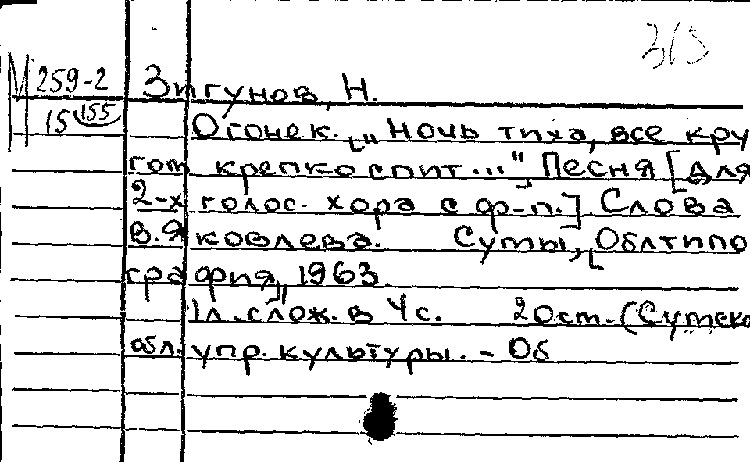 3/3
М 259-2 Зигунов, Н.
15 155
Огонек. „Ночь тиха, все кру
гом крепко спит...", Песня [для
2-х голос. хора с ф-п.] Слова
В. Яковлева. Сумы, Облтипо
графия, 1963.
1л. слож. в 4 с. 20см. (Сумско
обл. упр. культуры. - Об